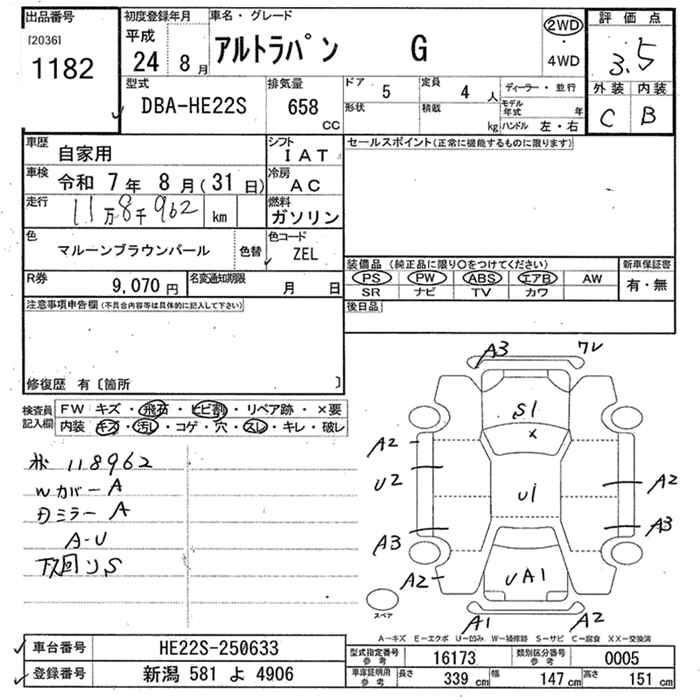 出品番号
[2036]
1182
初度登録年月
平成
24 8月
車名・グレード
アルトラパン G
2WD
・
4WD
評価点
3.5
外装 内装
C B
型式
DBA-HE22S
排気量
658
CC
ドア 5
形状
定員 4 人
積載 kg
ディーラー・並行
モデル年式 年
ハンドル 左・右
車歴
自家用
シフト
IAT
車検 令和 7年 8月(31日)
冷房
AC
走行
11万8千962 km
燃料
ガソリン
色
マルーンブラウンパール
色替
色コード
ZEL
R券
9,070円
名変通知期限
月 日
セールスポイント(正常に機能するものに限ります)
装備品 (純正品に限り○をつけてください)
PS PW ABS エアB AW
SR ナビ TV カワ
新車保証書
有・無
後日品
注意事項申告欄(不具合内容等は具体的に記入して下さい)
修復歴 有〔箇所 〕
検査員
記入欄
FW キズ・飛石・ヒビ割・リペア跡・×要
内装 キズ・汚レ・コゲ・穴・スレ・キレ・破レ
118962
Wカバー A
ミラー A
A-U
下回りS
A3
ワレ
S1
×
A2
U2
U1
A2
A3
A3
A2
UA1
A1
A2
スペア
A－キズ E－エクボ U－凹み W－補修跡 S－サビ C－腐食 XX－交換済
車台番号
HE22S-250633
登録番号
新潟 581 よ 4906
型式指定番号
参考
16173
類別区分番号
参考
0005
車庫証明用
参考
長さ 339 cm
幅 147 cm
高さ 151 cm